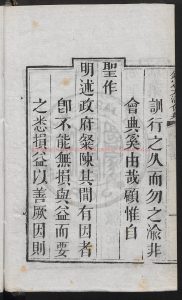 訓行之久而勿之渝非
會典奚由哉顧惟自
聖作
明述政府粲陳其間有因者
卽不能無損與益而要
之悉損益以善厥因則